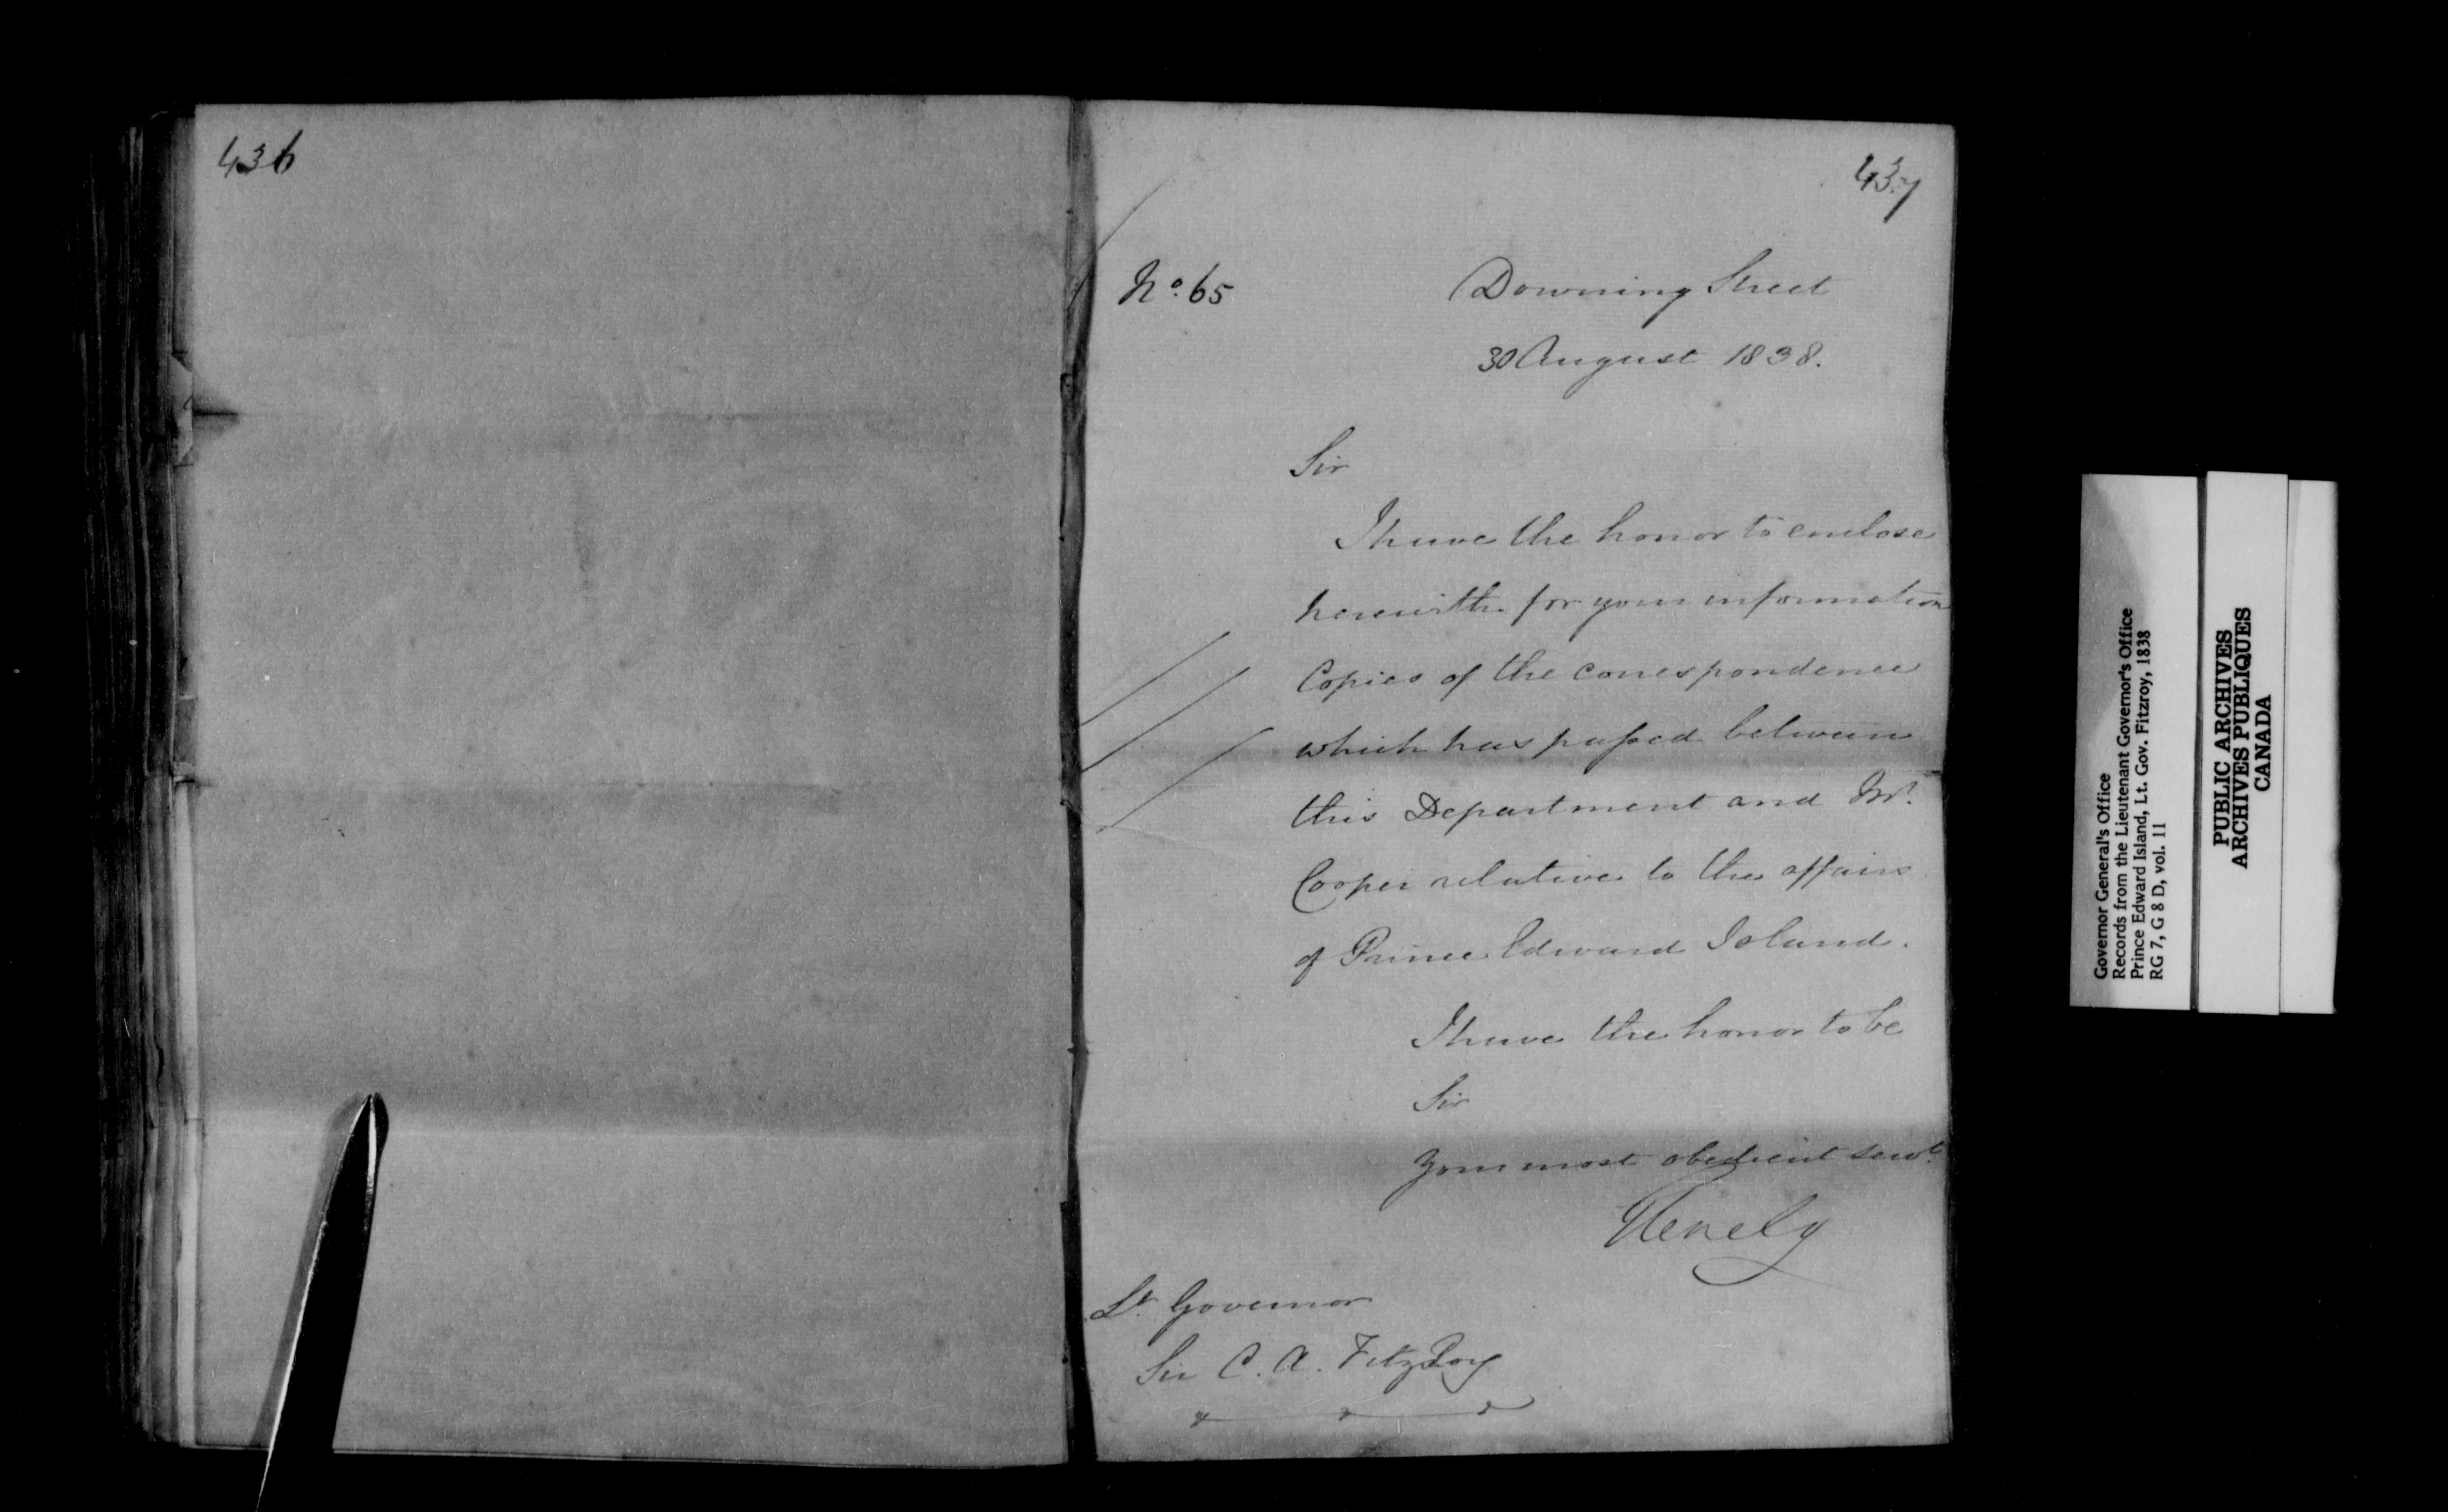 436
437
No. 65
Downing Street
30 August 1838.
Sir
I have the honor to enclose
herewith for your information
Copies of the correspondence
which has passed between
this Department and Mr.
Cooper relative to the affairs
of Prince Edward Island.
I have the honor to be
Sir
Your most obedient servt.
Glenelg
Lt. Governor
Sir C. A. FitzRoy
Governor General's Office
Records from the Lieutenant Governor's Office
Prince Edward Island, Lt. Gov. Fitzroy, 1838
RG 7, G 8 D, vol. 11
PUBLIC ARCHIVES
ARCHIVES PUBLIQUES
CANADA